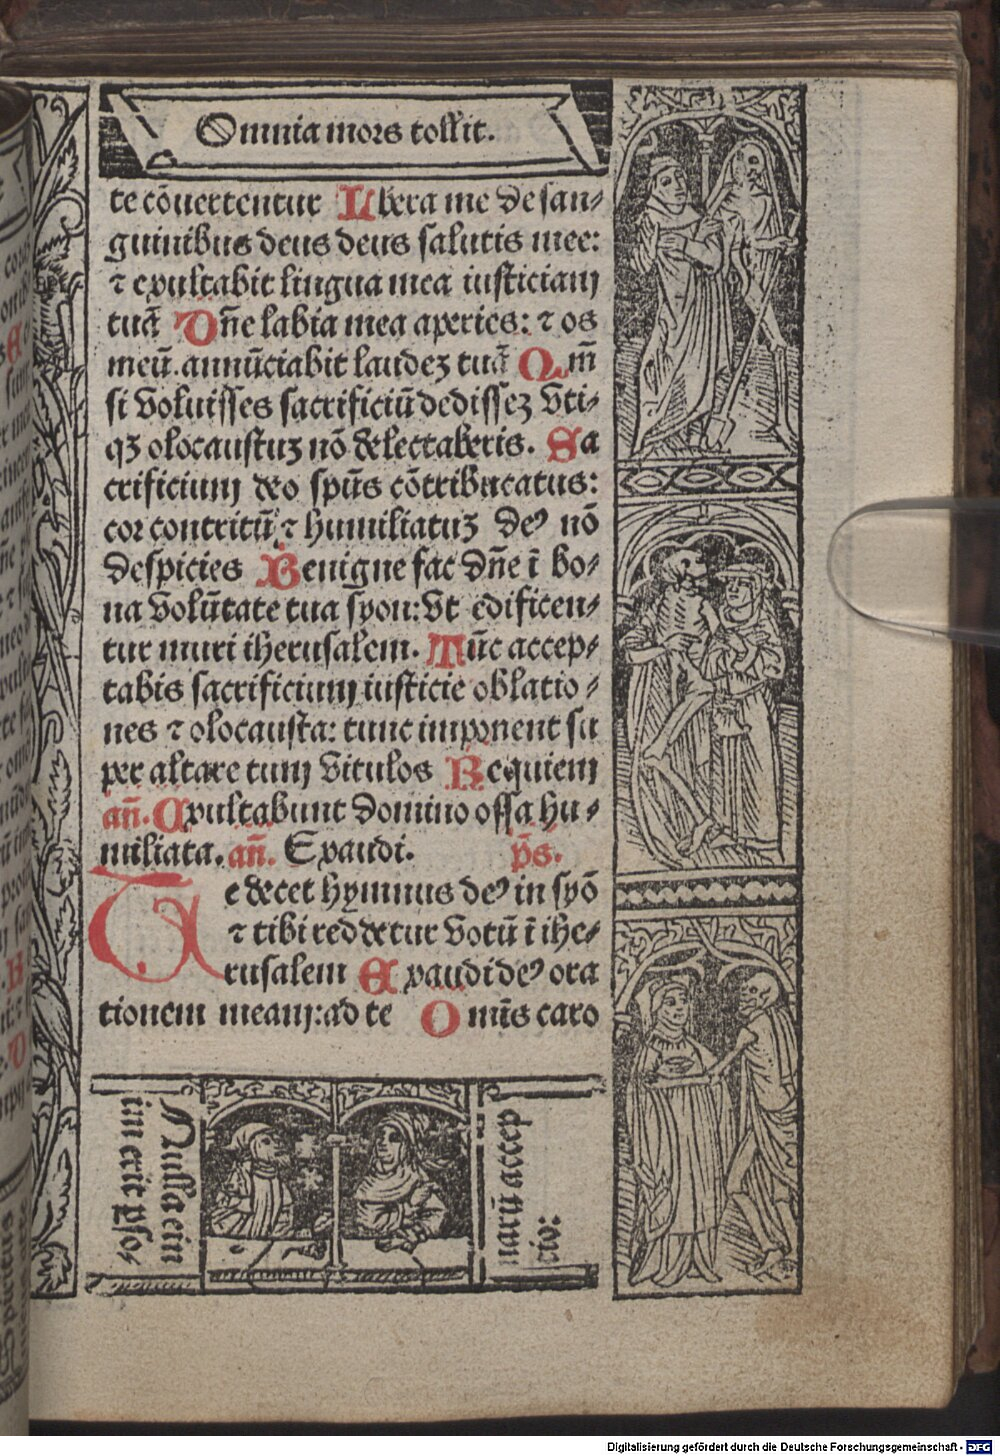 Omnia mors tollit.
te cõuertentur Libera me de san⸗
guinibus deus deus salutis mee:
⁊ exultabit lingua mea iusticiam
tuã Dñe labia mea aperies: ⁊ os
meũ annũciabit laudeꝫ tuã Qm̃
si voluisses sacrificiũ dedisseꝫ vti⸗
qꝫ olocaustuꝫ nõ delectaberis. Sa
crificium deo spũs cõtribucatus:
cor contritũ ⁊ humiliatuꝫ deꝰ nõ
despicies Benigne fac dñe ĩ bo⸗
na volũtate tua syon: vt edificen⸗
tur muri iherusalem. Tũc accep⸗
tabis sacrificium iusticie oblatio⸗
nes ⁊ olocausta: tunc imponent su
per altare tuum vitulos Requiem
añ. Exultabunt domino ossa hu⸗
miliata. añ. Exaudi. p̃s.
Te decet hymnus deꝰ in syõ
⁊ tibi reddetur votũ ĩ ihe⸗
rusalem Exaudi deꝰ ora
tionem meam: ad te Om̃is caro
Nulla ein
im erit ꝑso⸗
narũ accep
tio:
Digitalisierung gefördert durch die Deutsche Forschungsgemeinschaft - DFG